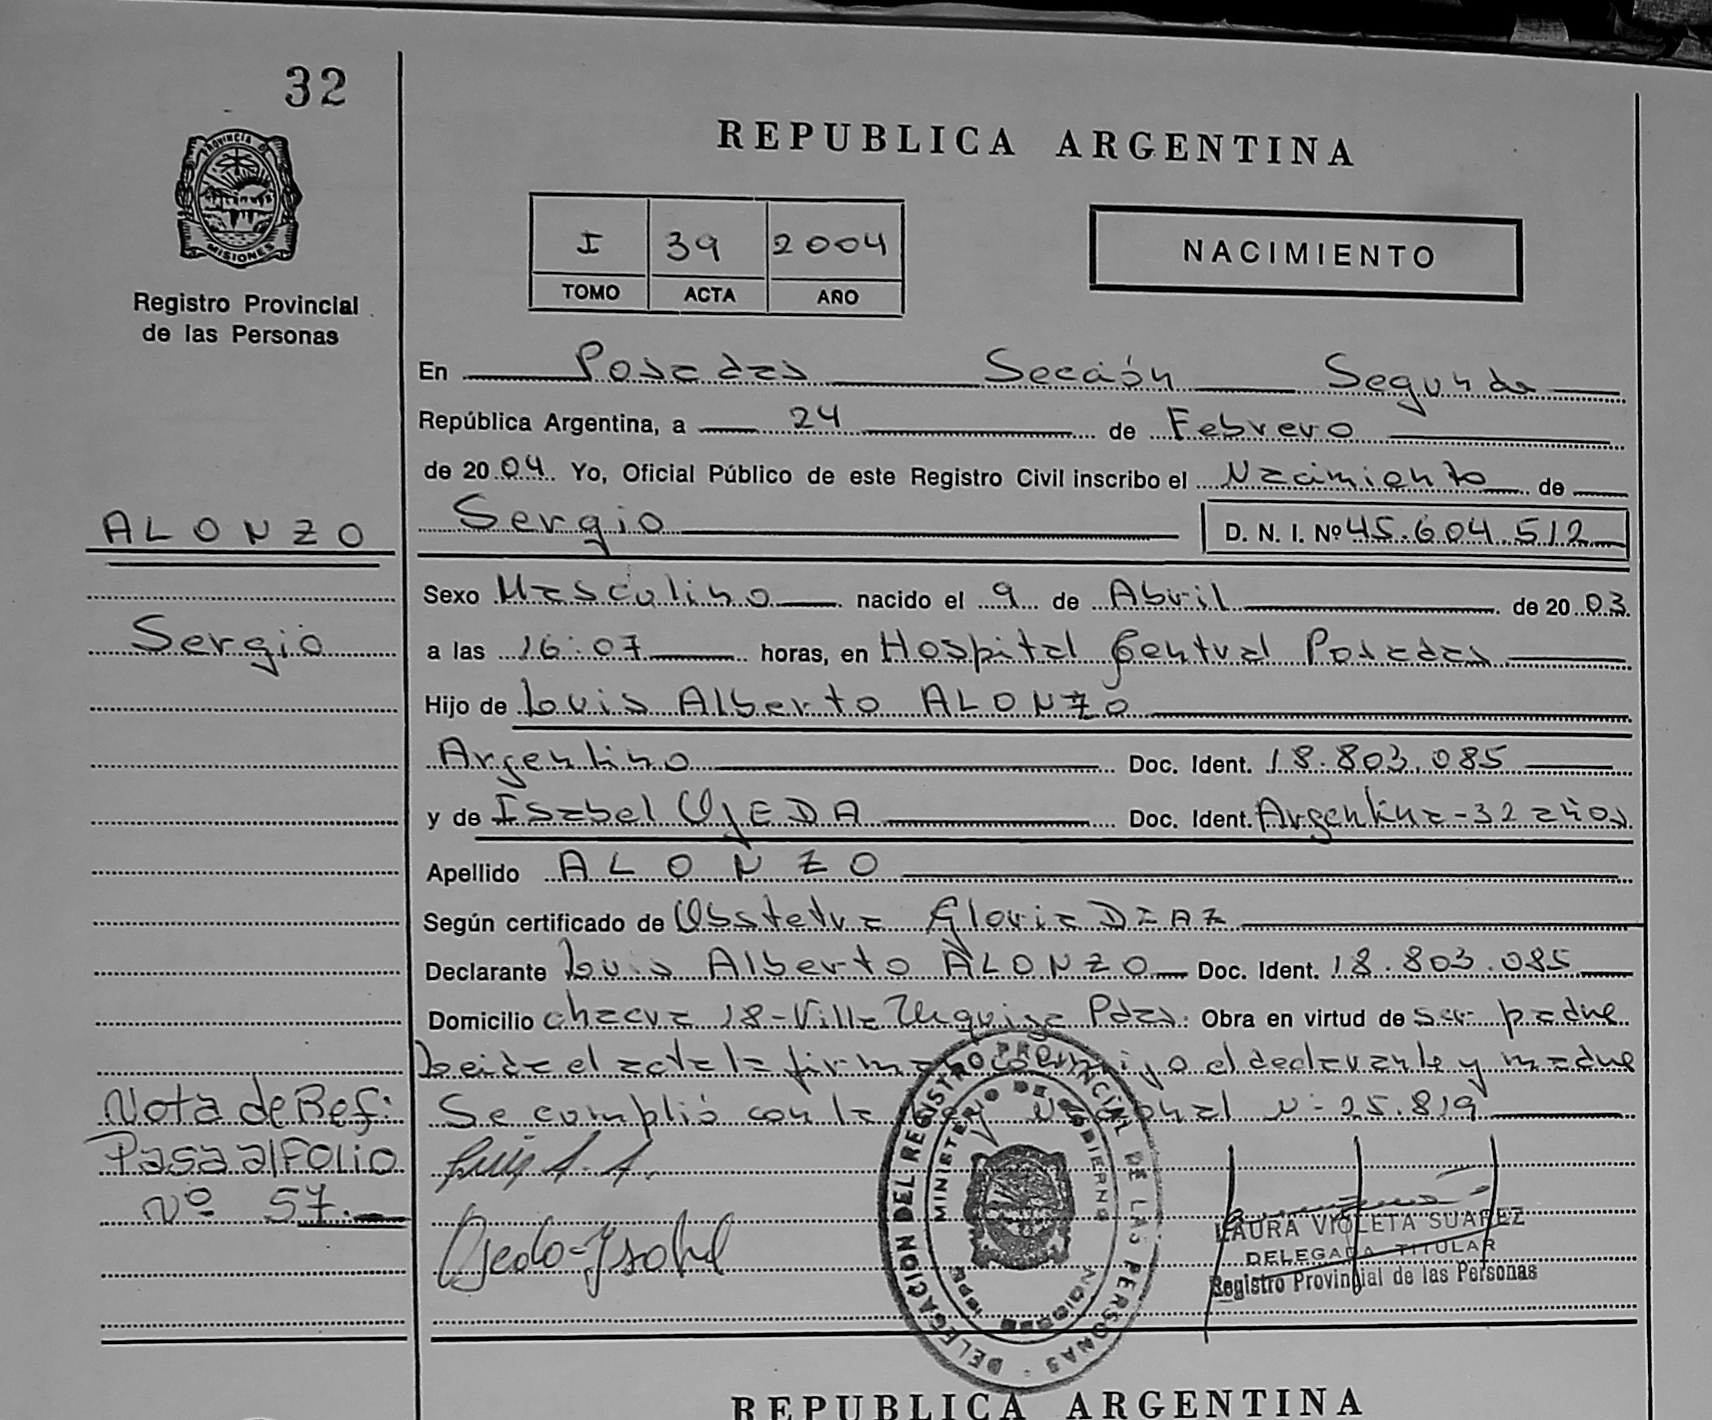 32
PROVINCIA DE
MISIONES
Registro Provincial
de las Personas
REPUBLICA ARGENTINA
I 39 2004
TOMO ACTA AÑO
NACIMIENTO
En Posadas Sección Segunda
República Argentina, a 24 de Febrero
de 20 04 Yo, Oficial Público de este Registro Civil inscribo el Nacimiento de
ALONZO
Sergio D. N. I. Nº 45.604.512
Sexo Masculino nacido el 9 de Abril de 20 03
Sergio
a las 16:07 horas, en Hospital Central Posadas
Hijo de Luis Alberto ALONZO
Argentino Doc. Ident. 18.803.085
y de Isabel OJEDA Doc. Ident. Argentina - 32 años
Apellido ALONZO
Según certificado de Obstetra Gloria DIAZ
Declarante Luis Alberto ALONZO Doc. Ident. 18.803.085
Domicilio chacra 18 - Villa Urquiza Pdas. Obra en virtud de ser padre
Leida el acta la firma conmigo el declarante y madre
Nota de Ref:
Se cumplió con la Nacional Nº 25.819
Pasa al Folio
Nº 57.-
Luis A. A.
Ojeda Isabel
DELEGACION DEL REGISTRO PROVINCIAL DE LAS PERSONAS
MINISTERIO DE GOBIERNO
LAURA VIOLETA SUAREZ
DELEGADA TITULAR
Registro Provincial de las Personas
REPUBLICA ARGENTINA